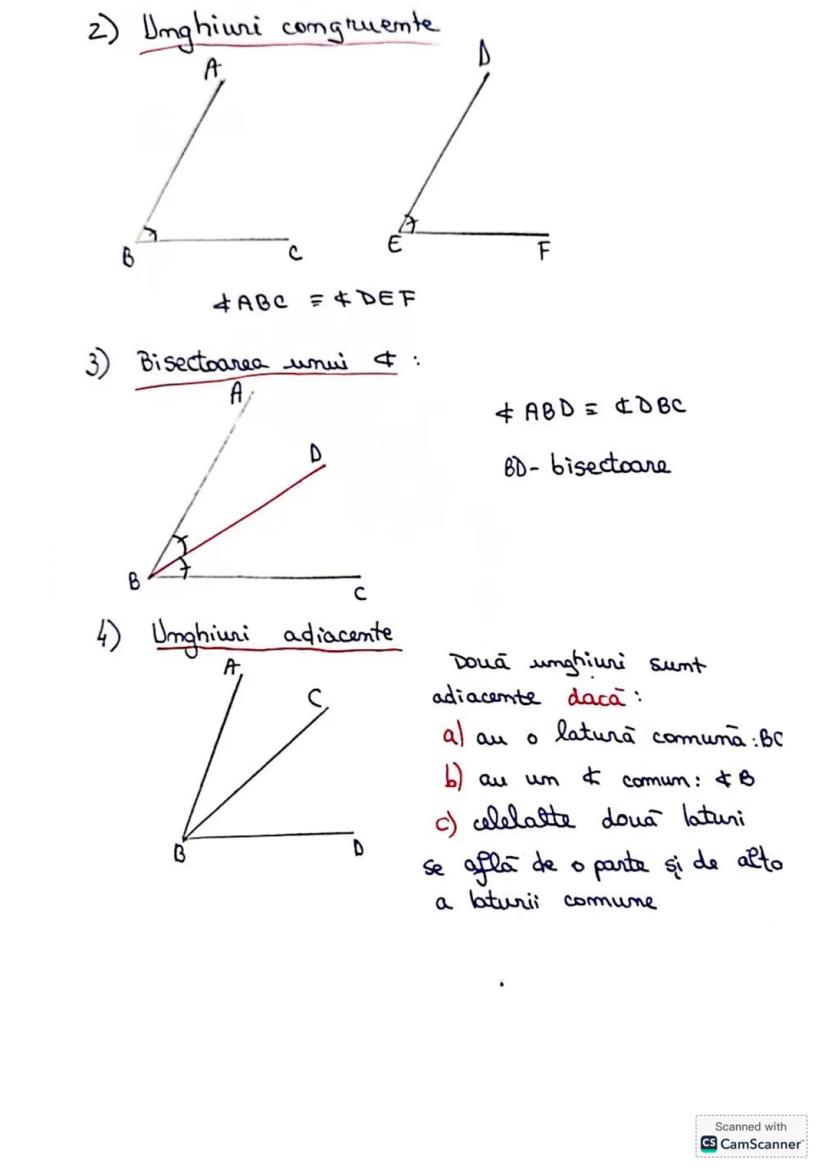 2) Unghiuri congruente
A
D
B
C
E
F
∢ABC ≡ ∢DEF
3) Bisectoarea unui ∢ :
A
∢ ABD ≡ ∢DBC
D
BD- bisectoare
B
C
4) Unghiuri adiacente
Două unghiuri sunt
A
adiacente dacă :
C
a) au o latură comună :BC
b) au un ∢ comun: ∢B
c) celelalte două laturi
B
D
se află de o parte și de alta
a laturii comune
Scanned with
CS CamScanner